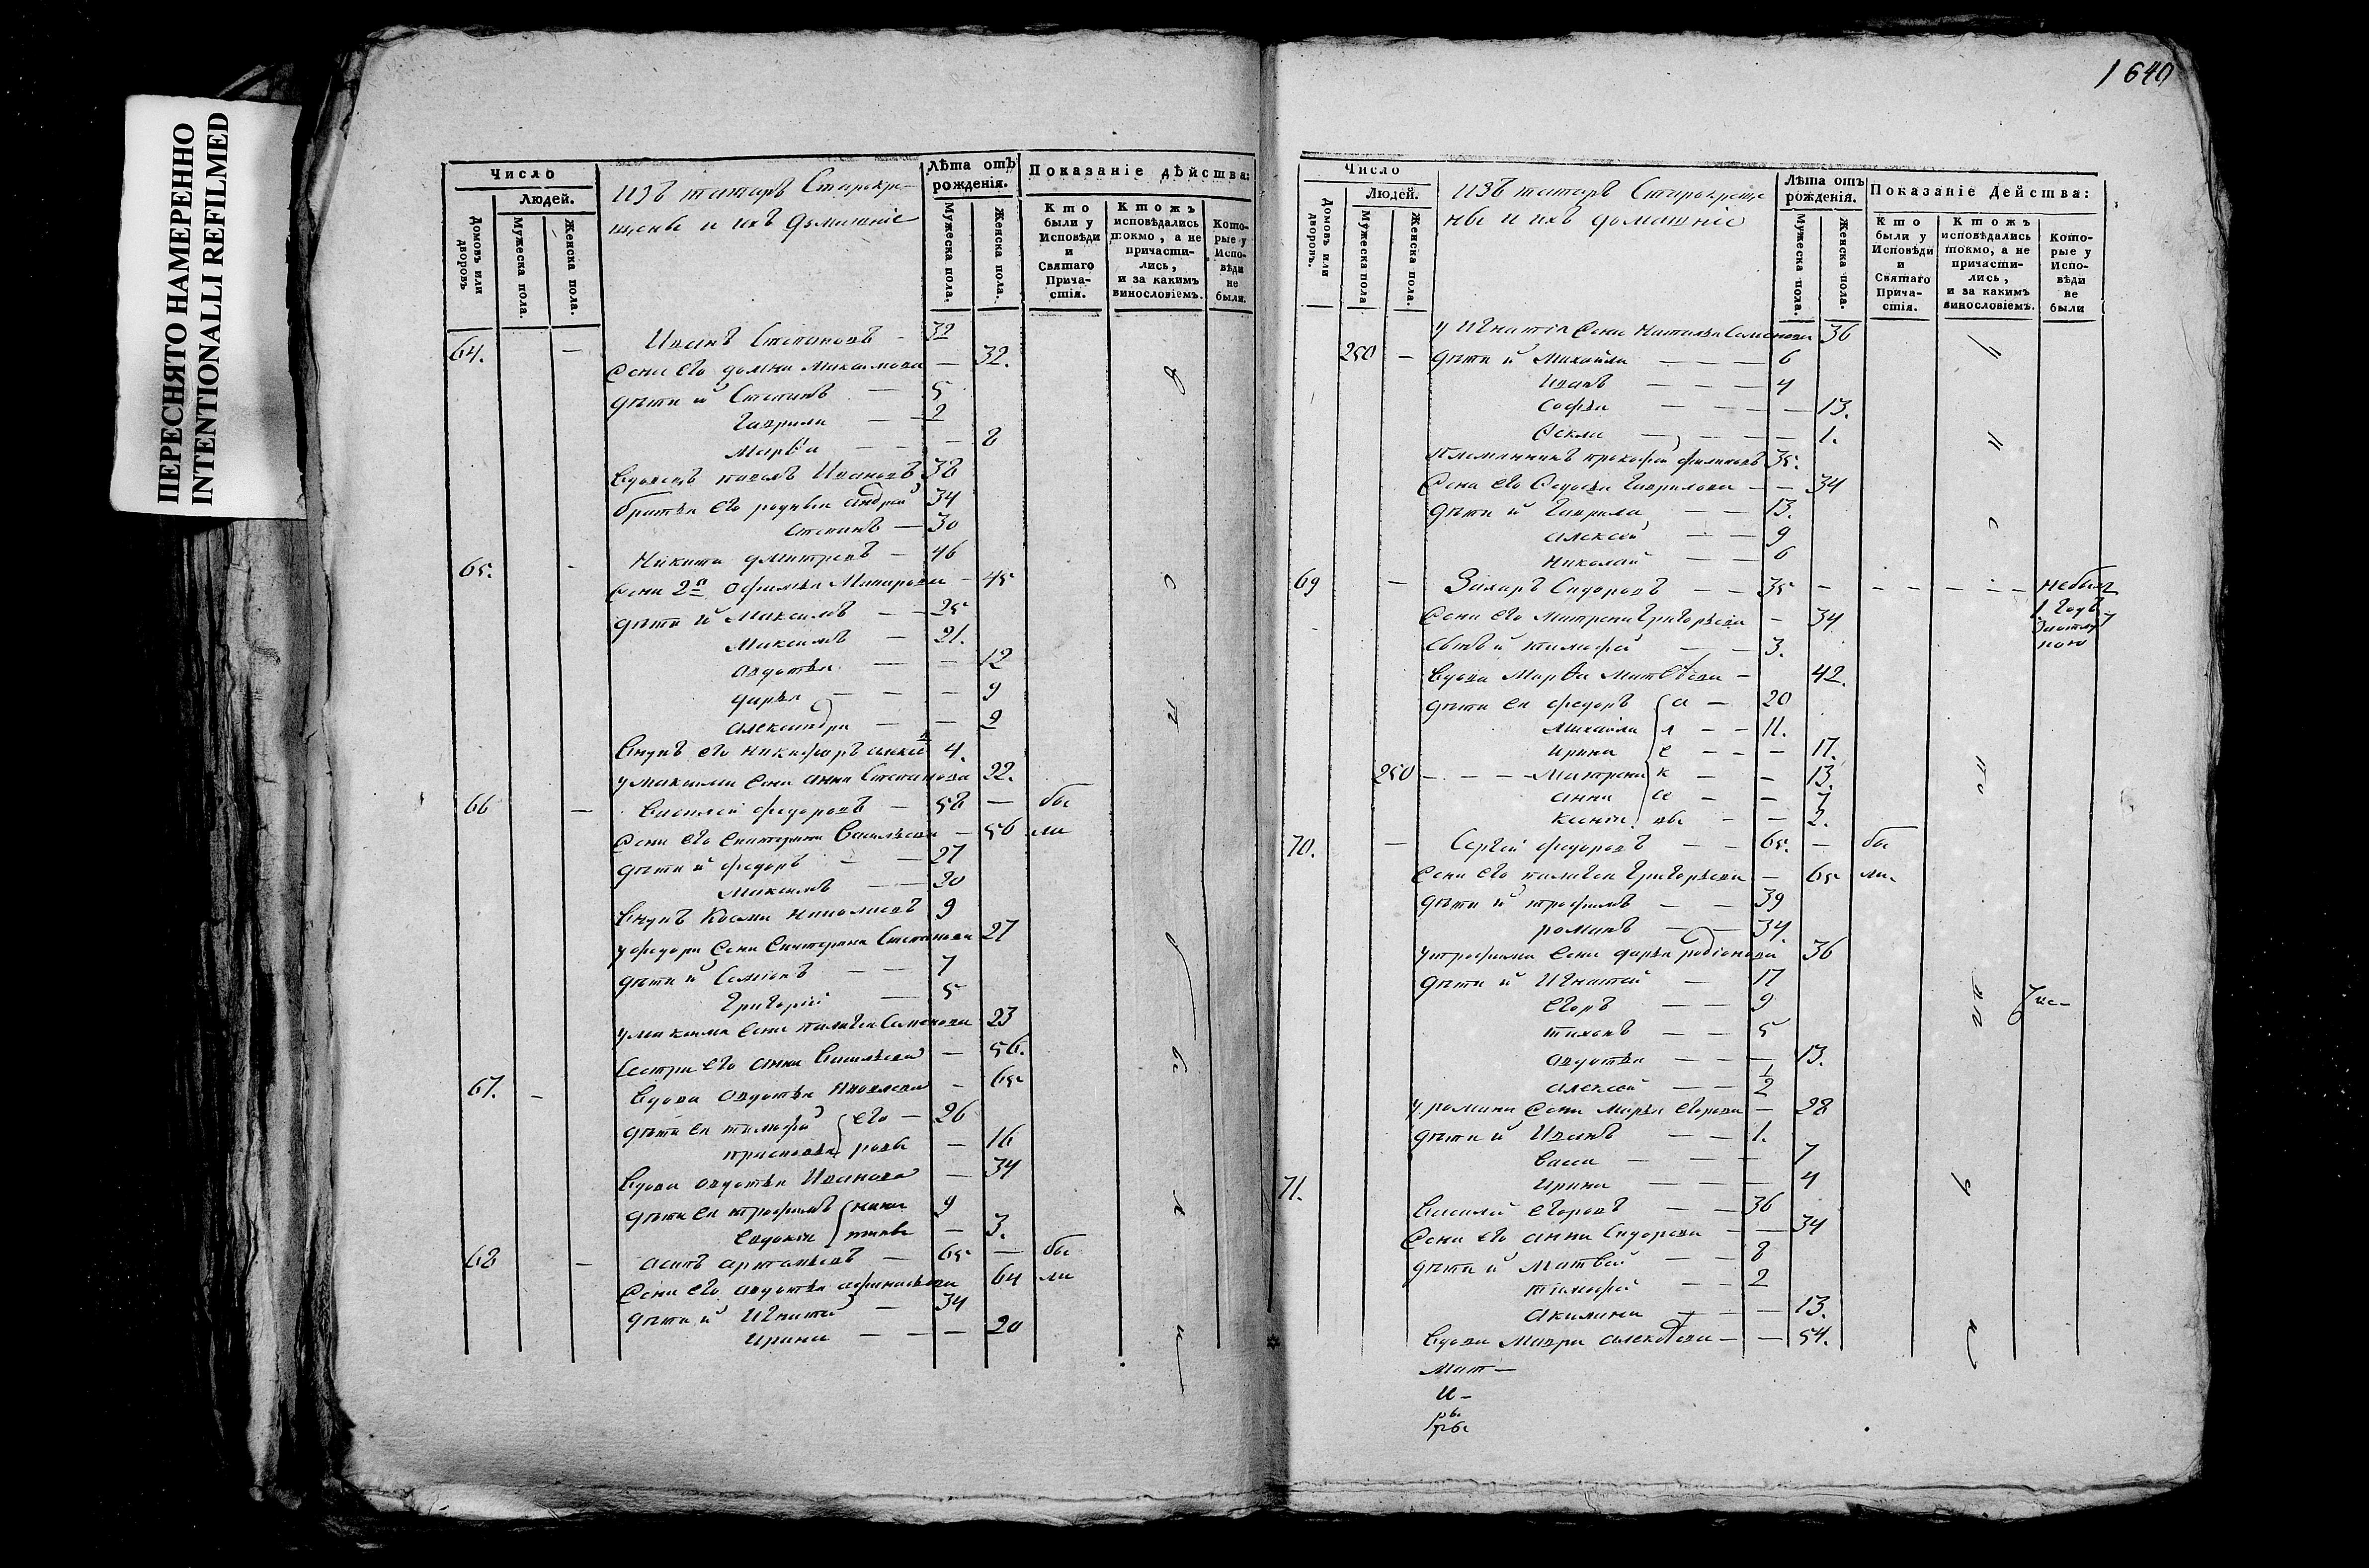 ПЕРЕСНЯТО НАМЕРЕННО
INTENTIONALLI REFILMED
Число
Людей.
Домовъ или дворовъ
Мужеска пола.
Женска пола.
Изъ татаръ Старокре-
щены и ихъ домашніе
Лѣта отъ рожденія.
Мужеска пола.
Женска пола.
Показаніе дѣйства:
Кто были у Исповѣди и Святаго Прича-стія.
Ктожъ исповѣдались токмо, а не причасти-лись, и за какимъ винословіемъ.
Кото-рые у Испо-вѣди не были.
64. — Иванъ Степановъ - 32
Жена его домна Максимова — 32.
дѣти й Степанъ — 5
Гаврила — 2
Марѳа — — 8
Вдовецъ павелъ Ивановъ 38
братья его родныи андрей 34
Степанъ — 30
65. - Никита дмитревъ — 46
Жена 2я Офимья Макарова - 45
дѣти й Максимъ — — 25
Максимъ — 21.
авдотья — — 12
дарья — — — 9
александра — — 2
Внукъ его никифоръ 4.
у максима жена анна Степанова 22.
66 — Василей федоровъ — 58 — бы
Жена его Екатерина Васильева — 56 ли
дѣти й федоръ — — 27
Максимъ — — 20
Внукъ Косма николаевъ 9
у федора жена Екатерина Степанова 27
дѣти й Семіонъ — — 7
Григорій — 5
у максима жена палагея Семенова 23
Сестра его анна Васильева — 56.
67. - Вдова авдотья Яковлева - 65
дѣти ея тимофей его — 26
прасковья ровы — 16
Вдова авдотья Иванова — 34
дѣти ея трофимъ ники 9
Евдокія тины — 3.
68 — Асипъ артемьевъ — 65 — бы
Жена его авдотья афанасьева 64 ли
дѣти й Игнатей — 34
Ирина — — — 20
1640
Число
Людей.
Домовъ или дворовъ.
Мужеска пола
Женска пола.
Изъ татаръ Старокреще
ны и ихъ домашніе
Лѣта отъ рожденія.
Мужеска пола.
Женска пола.
Показаніе Действа:
Кто были у Исповѣди и Святаго Прича-стія.
Ктожъ исповѣдались токмо, а не причасти-лись, и за какимъ винословіемъ.
Кото-рые у Испо-вѣди не были
у Игнатія жена Наталья Семенова 36
250 — дѣти й Михайла — — — 6
Иванъ — — — 4
Софья — — — — 13.
Ѳекла — — — — 1.
Племянникъ прокофей филиповъ 35.
Жена его Ѳедосья Гаврилова — — 34
дѣти й Гаврила — — 13.
алексей — — 9
николай — — 6
69 — Захаръ Сидоровъ — — 35 — — — — — небылъ
1 годъ
Жена его Матрена Григорьева — 34
Сынъ й тимофей — — 3.
Вдова Марѳа Матвѣева — 42.
дѣти ея федоръ а — 20
Михайла л — — 11.
ирина е — — — 17.
250 — — — — Матрена к — — 13.
анна се — — 7
Ксенія вы — — 2.
70. — Сергей федоровъ — — 65. — бы
Жена его палагея Григорьева — 65 ли
дѣти й трофимъ — — 39
романъ — — 34
у трофима жена дарья родіонова 36
дѣти й Игнатей — 17
Егоръ — — 9
тихонъ — — 5
авдотья — — — 13.
алексей — — 1/2
у романа жена марья Егорова — 28
дѣти й Иванъ — — 1.
Васса — — — 7
Ирина — — — 4
71. Василей Егоровъ — — 36
Жена его анна Сидорова — — 34
дѣти й Матвей — — 8
тимофей — — 2
акилина — — — 13.
Вдова Мавра алексѣева — — 54.